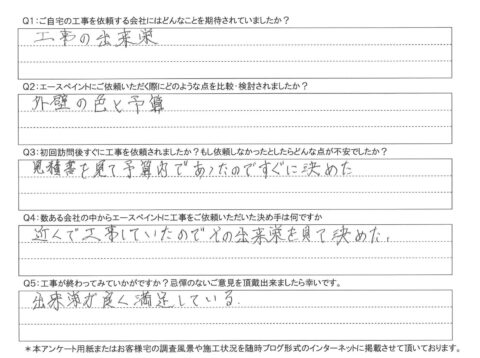 Q1:ご自宅の工事を依頼する会社にはどんなことを期待されていましたか?
工事の出来栄
Q2:エースペイントにご依頼いただく際にどのような点を比較・検討されましたか?
外壁の色と予算
Q3:初回訪問後すぐに工事を依頼されましたか?もし依頼しなかったとしたらどんな点が不安でしたか?
見積書を見て予算内であったのですぐに決めた
Q4:数ある会社の中からエースペイントに工事をご依頼いただいた決め手は何ですか
近くで工事していたのでその出来栄を見て決めた.
Q5:工事が終わってみていかがですか?忌憚のないご意見を頂戴出来ましたら幸いです。
出来栄が良く満足している.
*本アンケート用紙またはお客様宅の調査風景や施工状況を随時ブログ形式のインターネットに掲載させて頂いております。